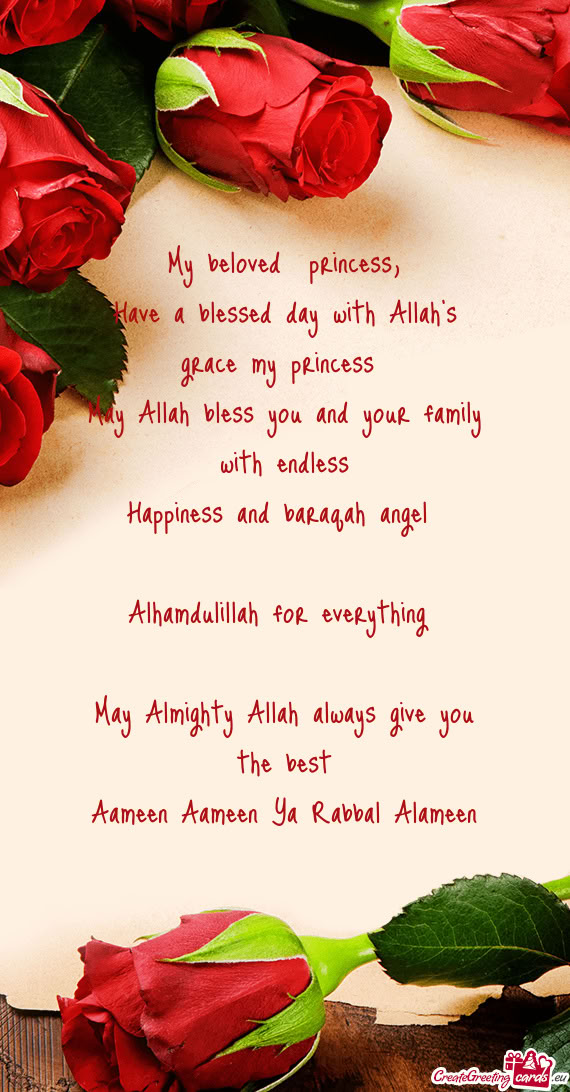 My beloved princess,
Have a blessed day with Allah's
grace my princess
May Allah bless you and your family
with endless
Happiness and baraqah angel
Alhamdulillah for everything
May Almighty Allah always give you
the best
Aameen Aameen Ya Rabbal Alameen
CreateGreetingcards.eu